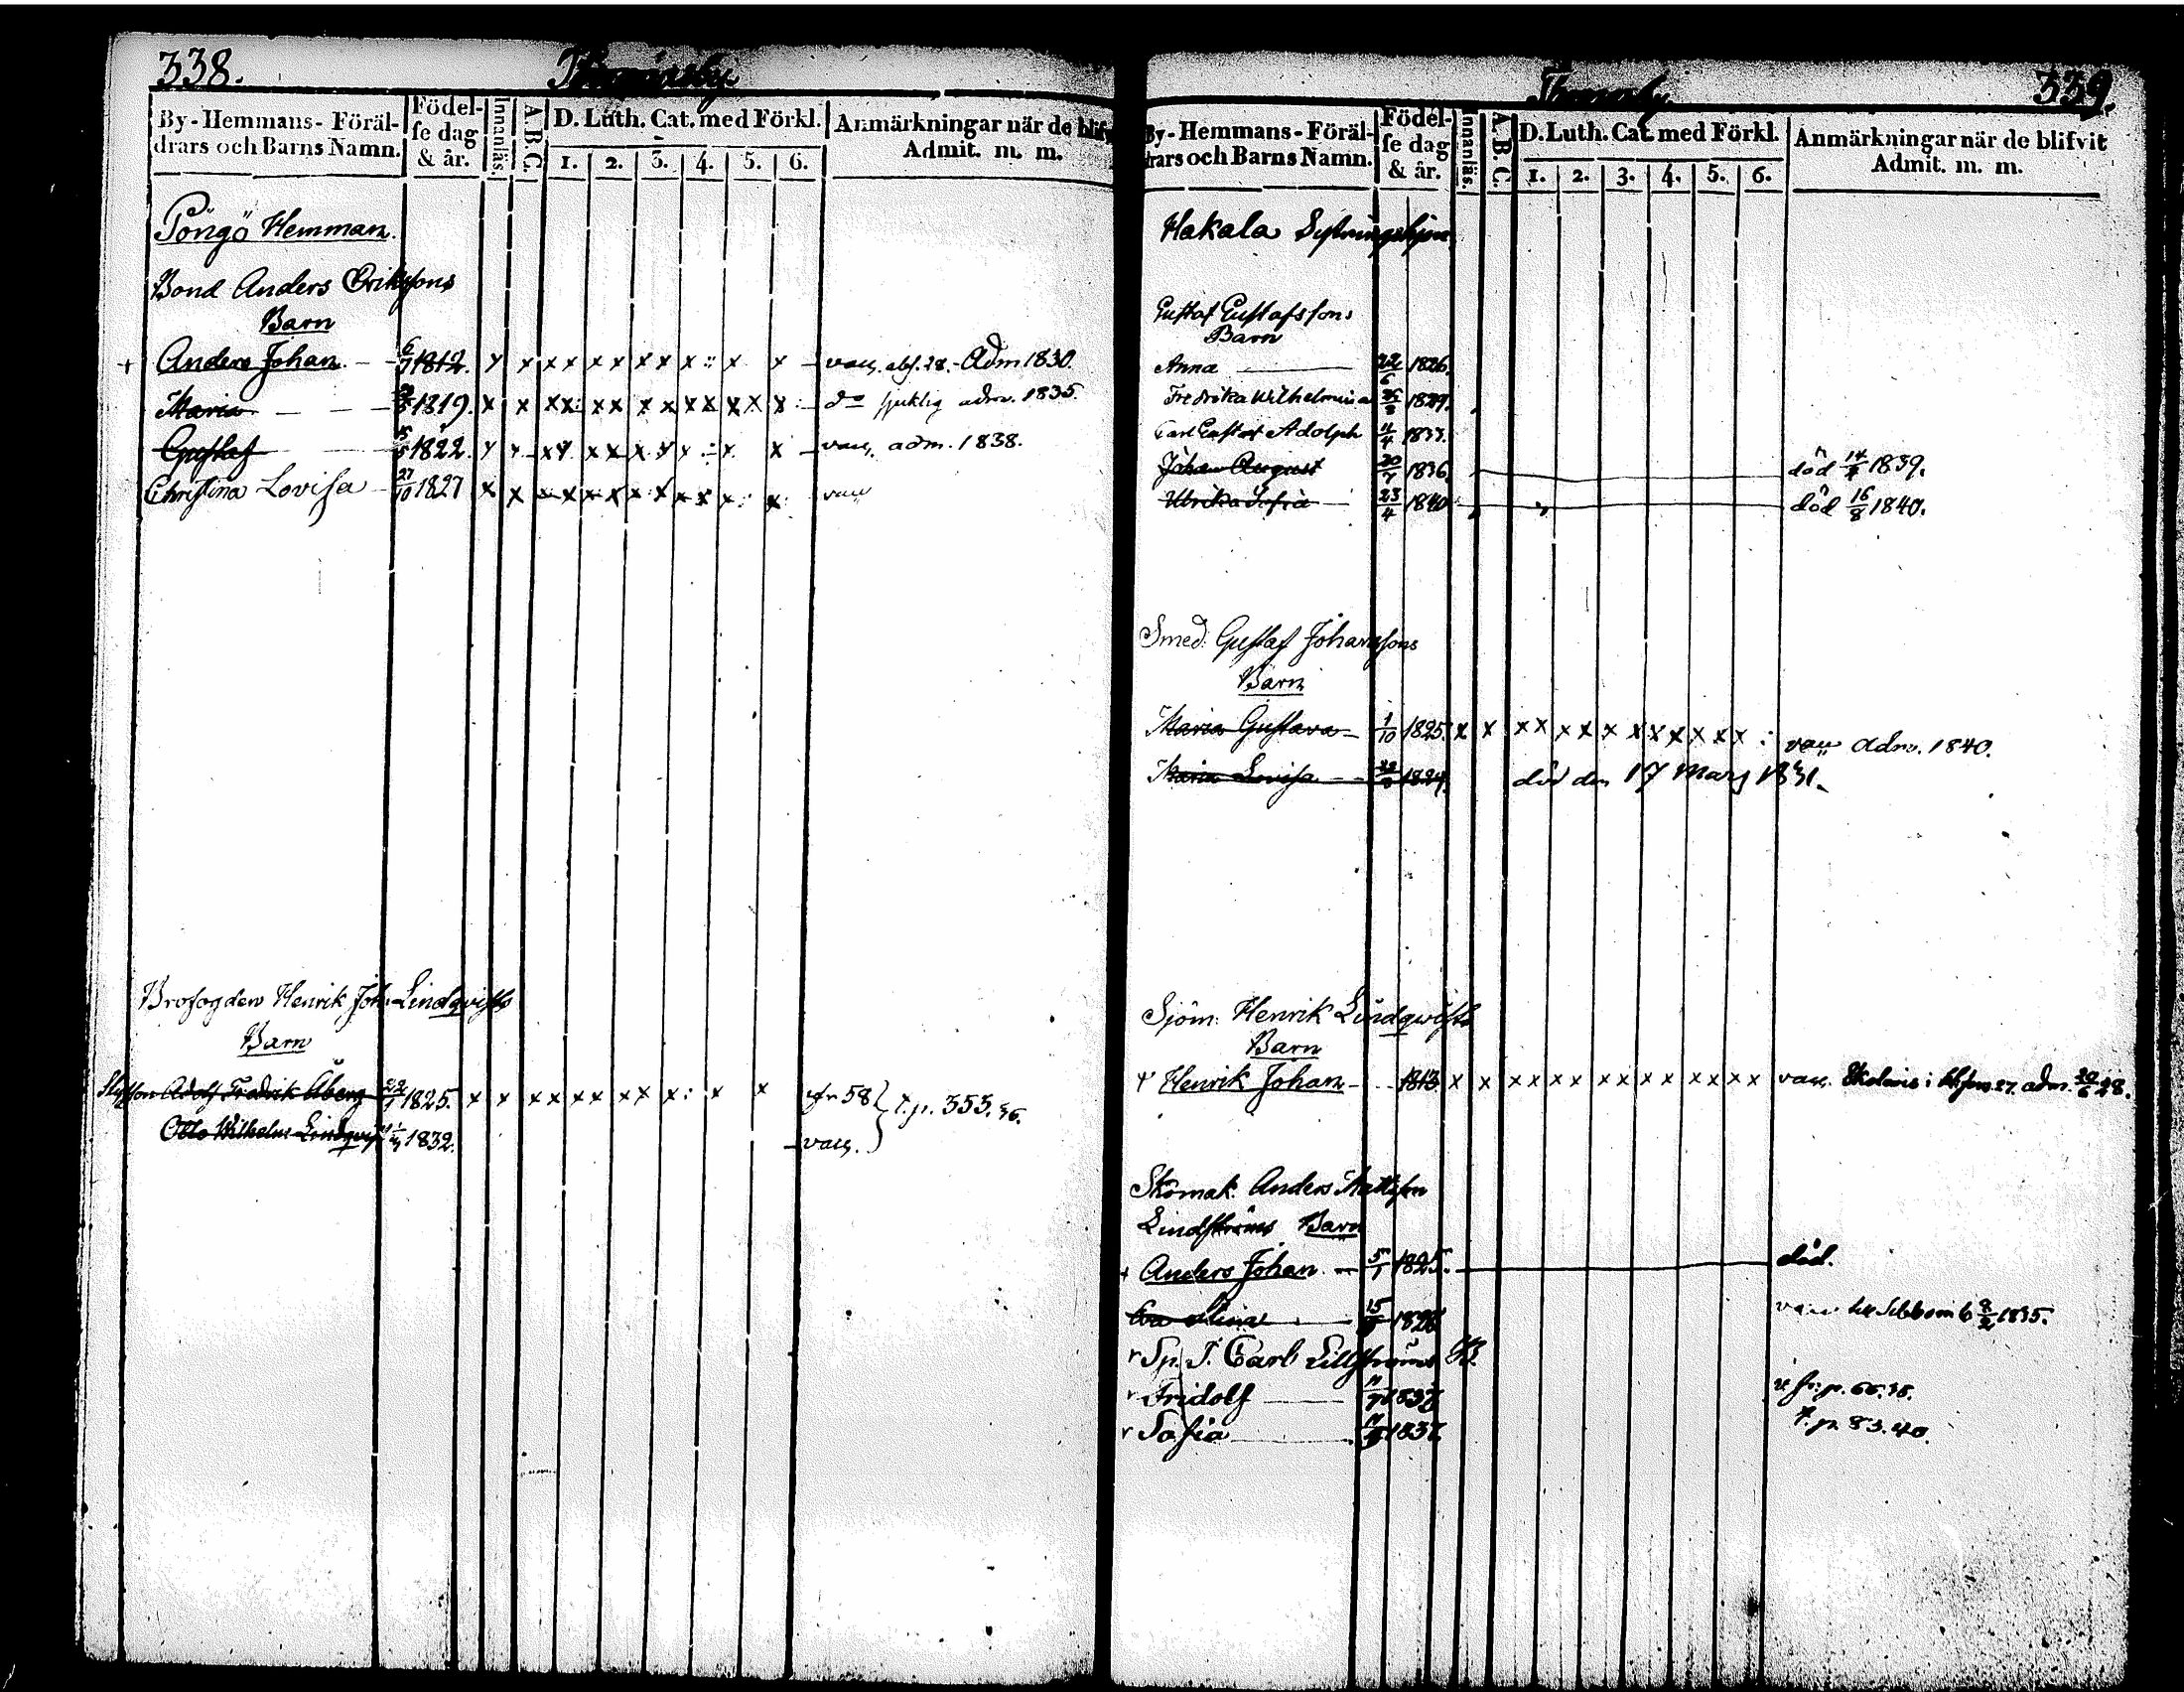 338.
By-Hemmans-Föräl-
drars och Barns Namn.
Födel-
se dag
& år.
Innanläs.
A.B.C.
D. Luth. Cat. med Förkl.
1. 2. 3. 4. 5. 6.
Anmärkningar när de blifv
Admit. m. m.
Pöngö Hemman.
Bond Anders Erikssons
Barn
+ Anders Johan 6/7 1812. x x x x x x x x x : x x Adm 1830.
Maria 1819. x x x x : x x x x x x x x x : do sjuklig adm. 1835.
Gustaf 15/5 1822. x x x x x x x x x : x x adm. 1838.
Christina Lovisa 27/10 1827 x x x x x x x x x x x : x :
Brofogden Henrik Joh. Lindqvists
Barn
Adolf Fredrik Åberg 1825. x x x x x x x x x : x x 58 } t. p. 353. 36.
Otto Wilhelm Lindqvist 1832. vacc.
339.
By-Hemmans-Föräl-
drars och Barns Namn.
Födel-
se dag
& år.
Innanläs.
A.B.C.
D. Luth. Cat. med Förkl.
1. 2. 3. 4. 5. 6.
Anmärkningar när de blifvit
Admit. m. m.
Hakala
Gustaf Gustafssons
Barn
Anna 22/6 1826.
Fredrika Wilhelmina 1829.
Carl Gustaf Adolph 11/4 1833.
Johan August 20/7 1836. död 14/4 1839.
Ulrika Sofia 23/4 1840 död 16/8 1840.
Smed: Gustaf Johanssons
Barn
Maria Gustava 1/10 1825. x x x x x x x x x x x x x : adm. 1840.
Maria Lovisa död den 17 Mars 1831.
Sjöm: Henrik Lindqwists
Barn
Henrik Johan 1813 x x x x x x x x x x x x x x vacc. adm. 28.
Skomak. Anders Mattsson
Lindströms Barn
+ Anders Johan 5/1 1825. död.
Eva Stina 1835.
Carl
Fridolf
Sofia t. p. 83. 40.